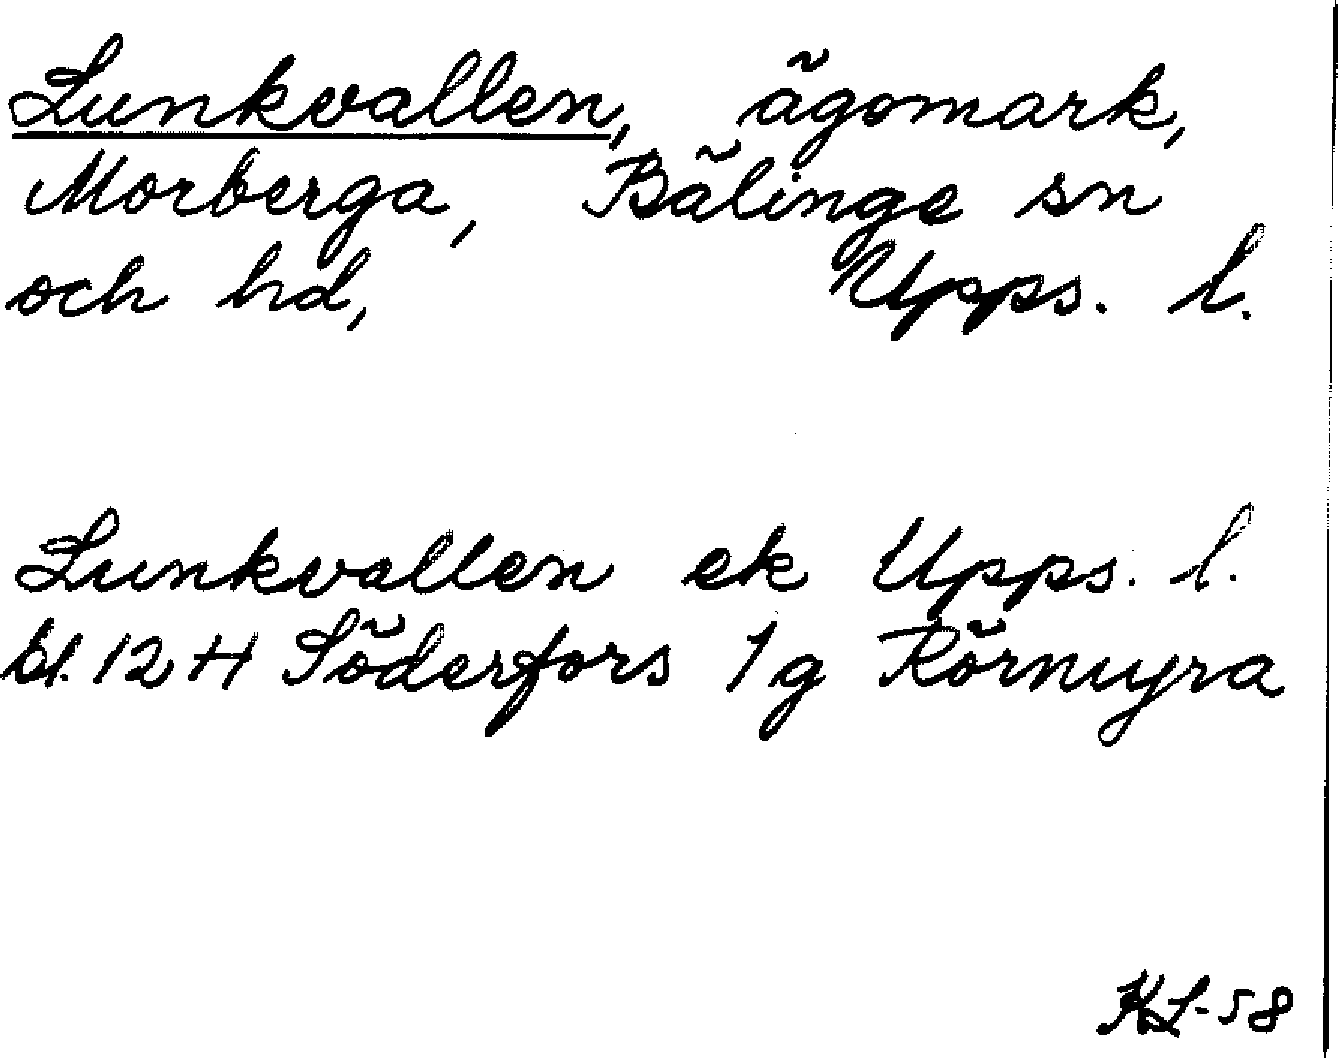 Lunkvallen, ägomark,
Morberga, Bälinge sn
och hd, Upps. l.
Lunkvallen ek Upps. l.
bl. 12 H Söderfors 1 g Rörmyra
KL-58